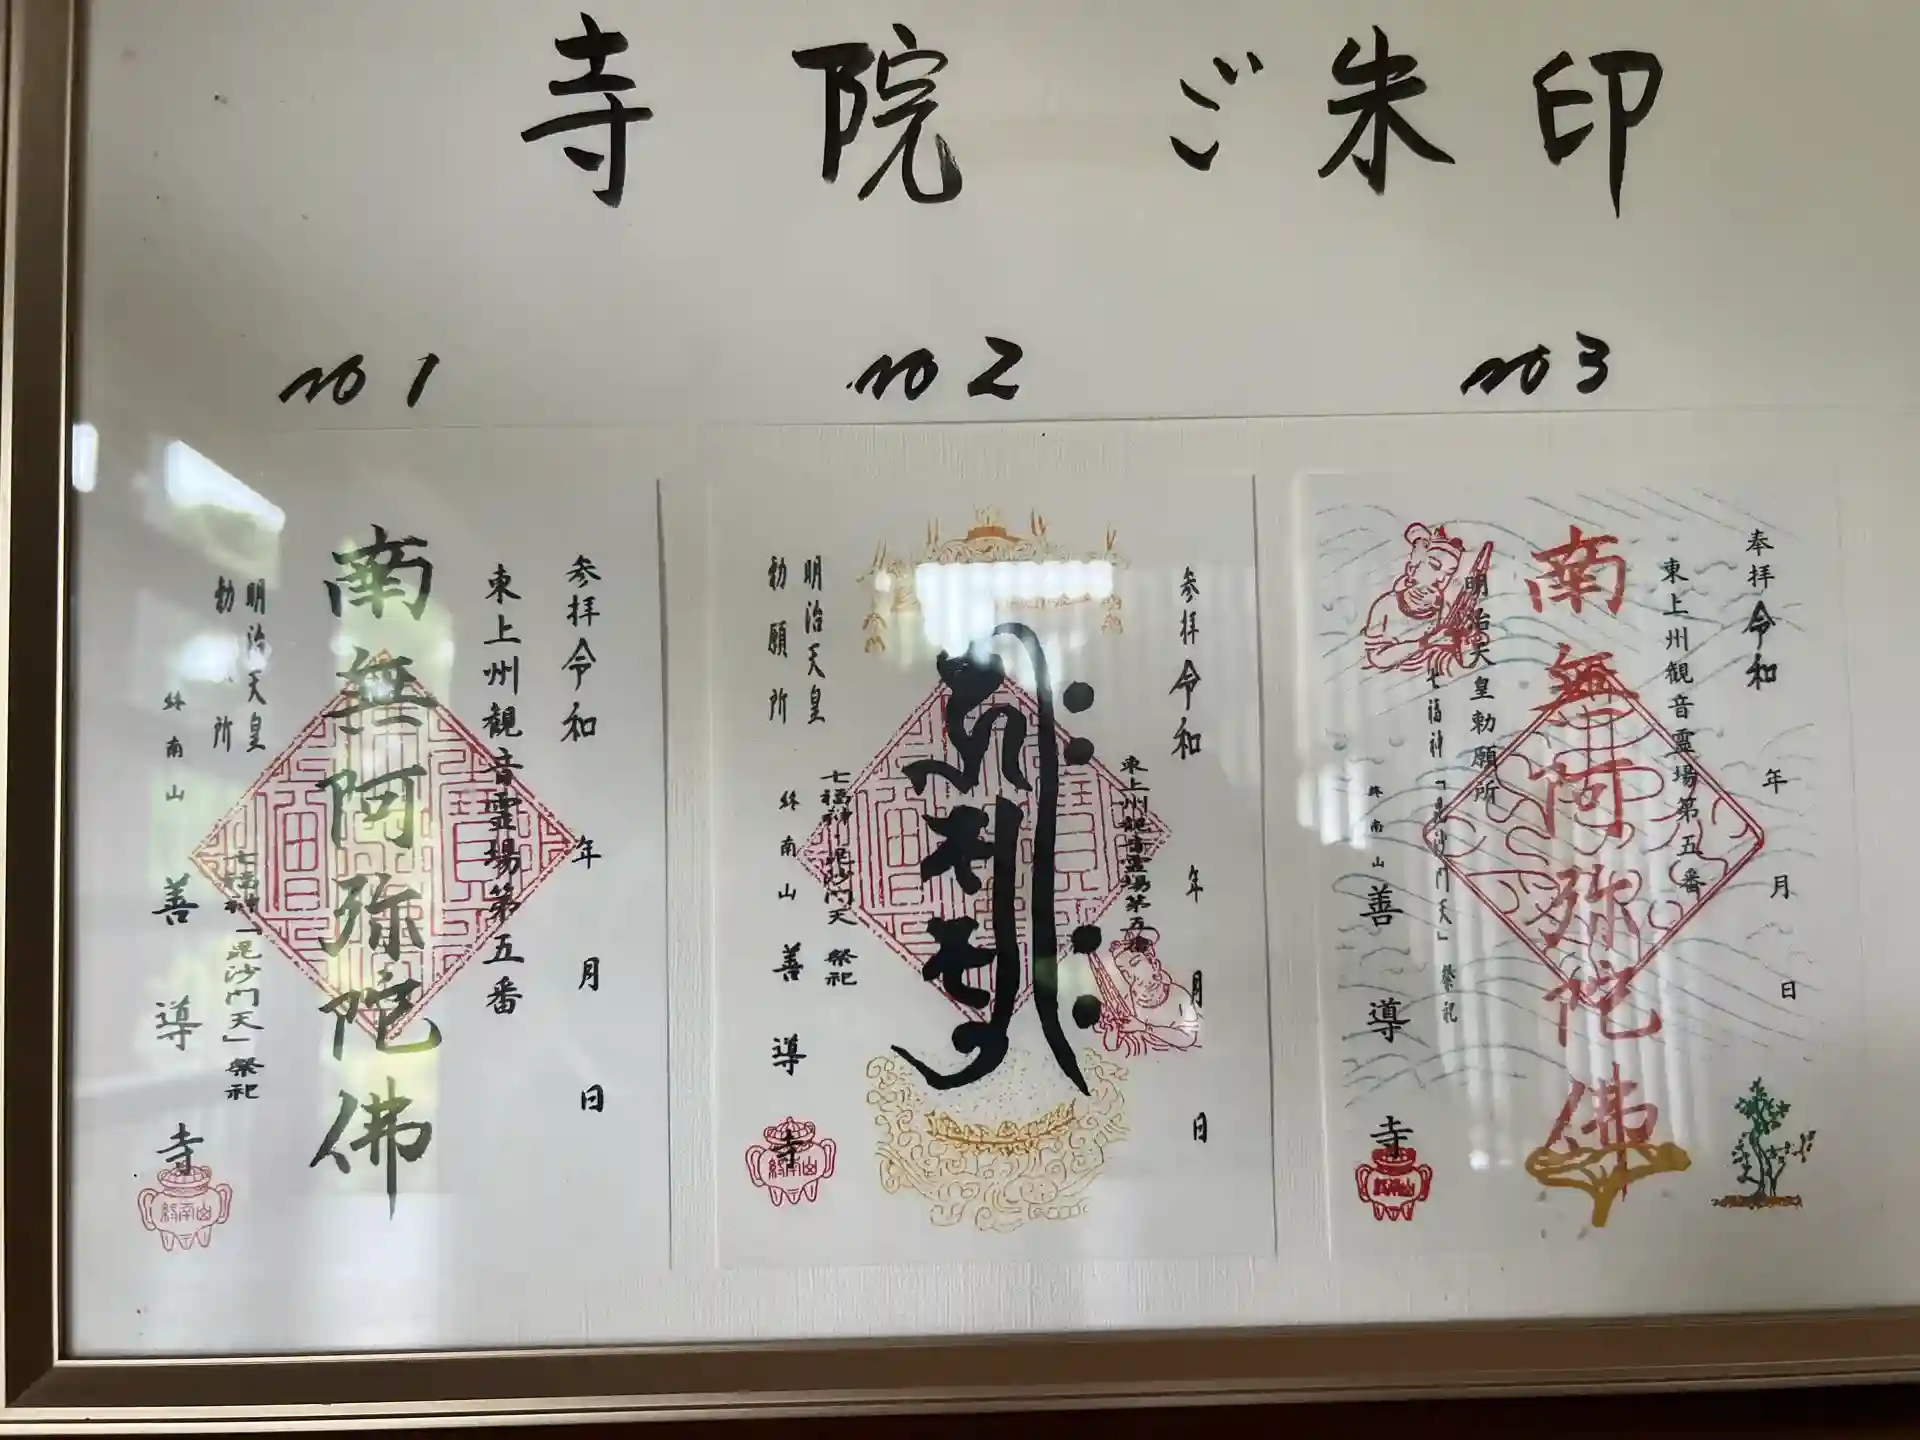 寺院 ご朱印
no 1
no 2
no 3
参拝 令和 年 月 日
東上州観音霊場第五番
南無阿弥陀佛
明治天皇
勅 所
七福神「毘沙門天」祭祀
終南山 善導寺
終南山
参拝 令和 年 月 日
東上州観音霊場第五番
明治天皇
勅願所
七福神「毘沙門天 祭祀
終南山 善導寺
終南山
奉拝 令和 年 月 日
東上州観音霊場第五番
南無阿弥陀佛
明治天皇勅願所
七福神「毘沙門天」祭祀
終南山 善導寺
終南山